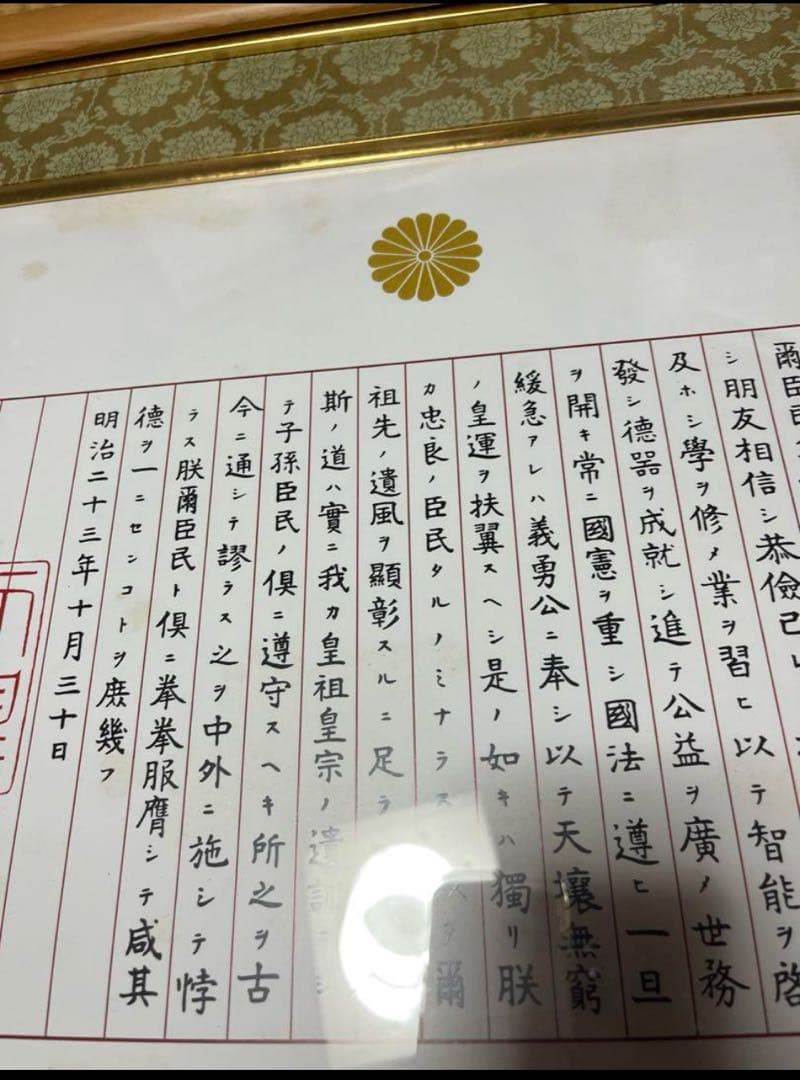 爾臣民
シ朋友相信シ恭儉己レ
及ホシ學ヲ修メ業ヲ習ヒ以テ智能ヲ啓
發シ德器ヲ成就シ進テ公益ヲ廣メ世務
ヲ開キ常ニ國憲ヲ重シ國法ニ遵ヒ一旦
緩急アレハ義勇公ニ奉シ以テ天壤無窮
ノ皇運ヲ扶翼スヘシ是ノ如キハ獨リ朕
カ忠良ノ臣民タルノミナラス爾
祖先ノ遺風ヲ顯彰スルニ足ラ
斯ノ道ハ實ニ我カ皇祖皇宗ノ遺訓ニシ
テ子孫臣民ノ俱ニ遵守スヘキ所之ヲ古
今ニ通シテ謬ラス之ヲ中外ニ施シテ悖
ラス朕爾臣民ト俱ニ拳拳服膺シテ咸其
德ヲ一ニセンコトヲ庶幾フ
明治二十三年十月三十日